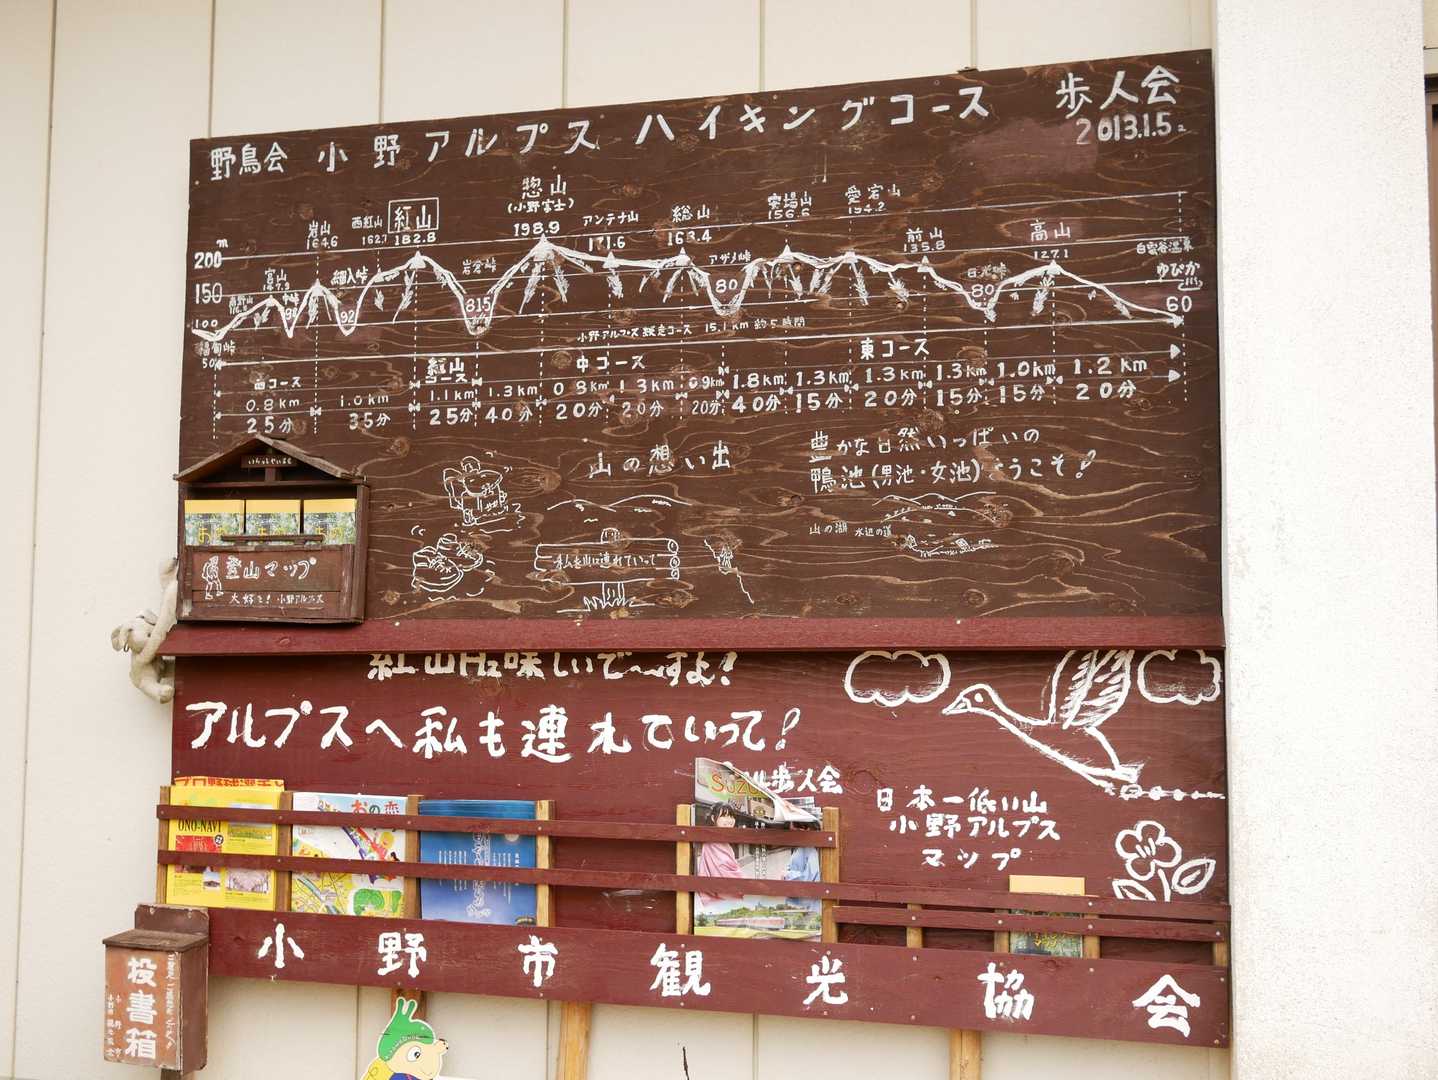 野鳥会 小野アルプス ハイキングコース 歩人会
2013.1.5
惣山
(小野富士)
198.9
紅山
182.8
西紅山
162.7
岩山
164.6
アンテナ山
171.6
総山
163.4
安場山
156.6
愛宕山
154.2
前山
135.8
高山
127.1
白雲谷温泉
ゆぴか
60
m
200
150
100
50
富山
細入峠
92
岩倉峠
815
アザメ峠
80
日光峠
80
福甸峠
小野アルプス縦走コース 15.1km 約5時間
西コース
紅山
コース
中コース
東コース
0.8km 1.0km 1.1km 1.3km 0.8km 1.3km 0.9km 1.8km 1.3km 1.3km 1.3km 1.0km 1.2km
25分 35分 25分 40分 20分 20分 20分 40分 15分 20分 15分 15分 20分
山の想い出
豊かな自然いっぱいの
鴨池(男池・女池)ようこそ!
山の湖 水辺の道
私も山に連れていって
登山マップ
大好き!小野アルプス
紅山H₂味しいで〜すよ!
アルプスへ私も連れていって!
歩人会
日本一低い山
小野アルプス
マップ
ONO-NAVI
おの恋
SUZU
小野市観光協会
投書箱